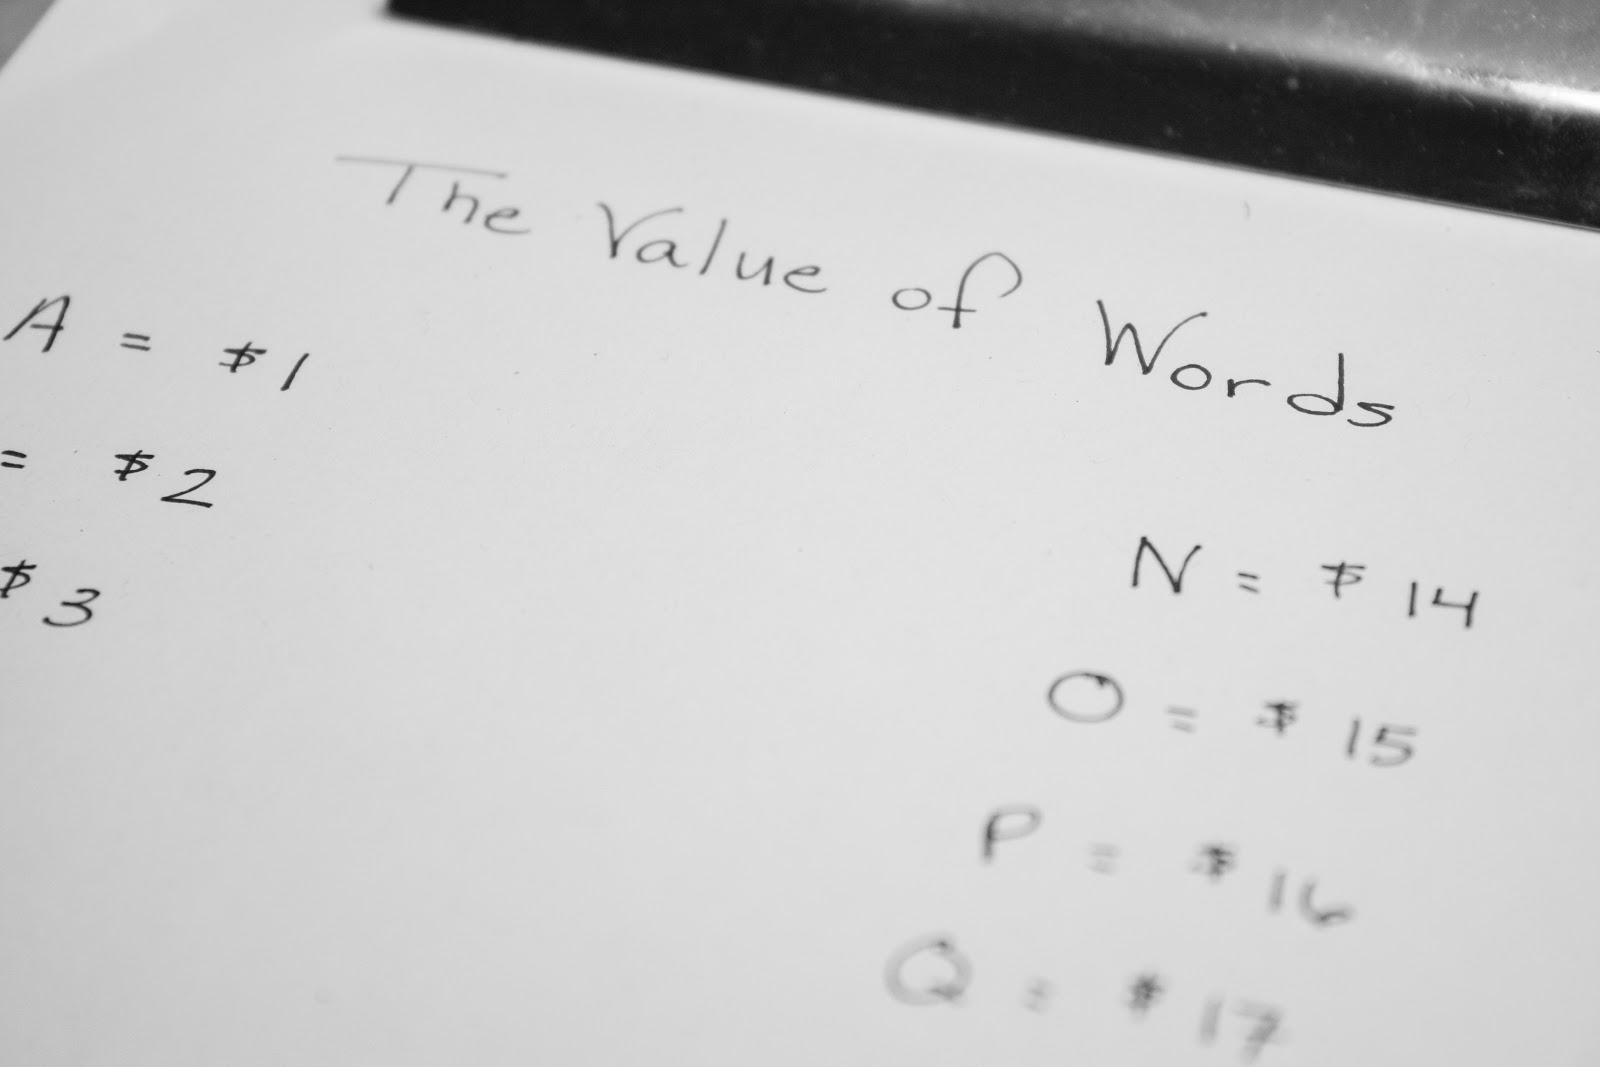 The Value of Words
A = $1
= $2
$3
N = $14
O = $15
P = $16
Q = $17